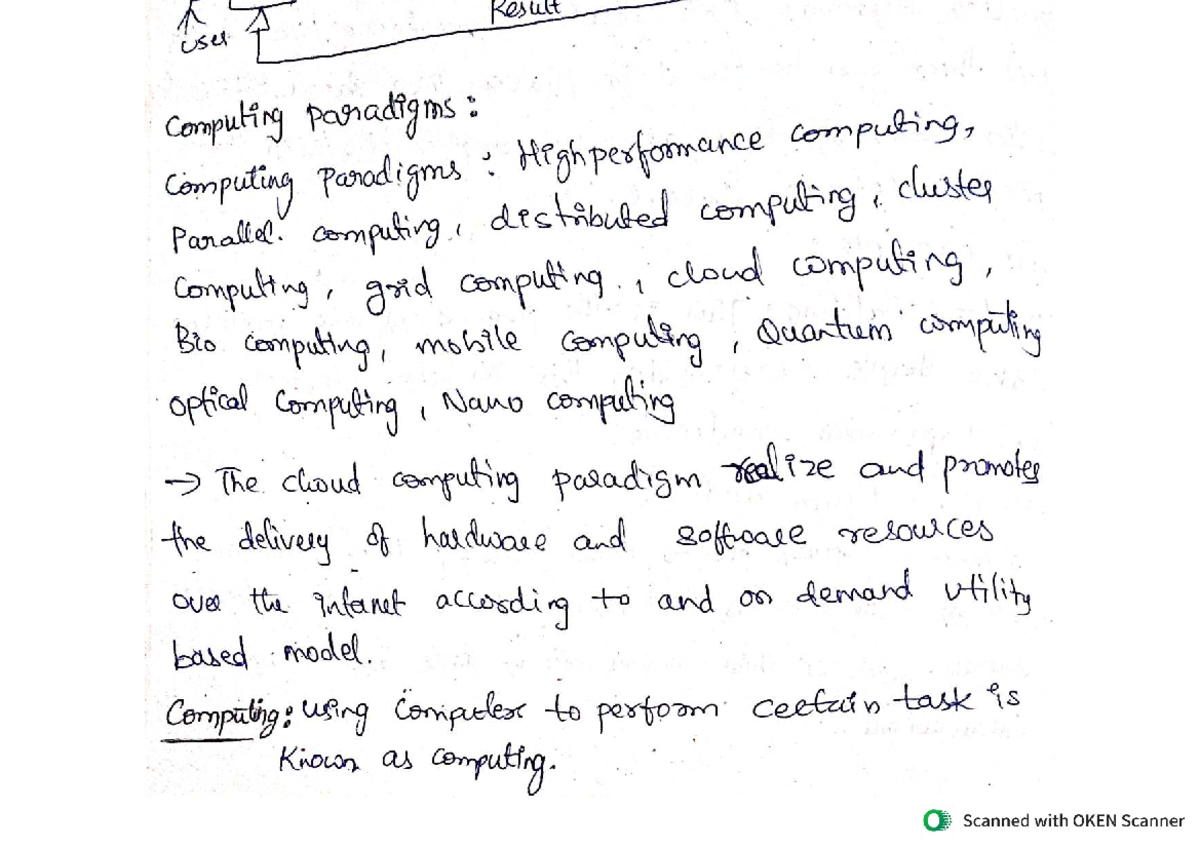 Result
user
Computing Paradigms :
Computing Paradigms : Highperformance computing,
Parallel. computing, distributed computing, cluster
Computing, grid computing, cloud computing,
Bio computing, mobile computing, Quantum computing
optical Computing, Nano computing
→ The cloud computing paradigm realize and promotes
the delivery of hardware and software resources
over the internet according to and on demand utility
based model.
Computing: using Computer to perform certain task is
Known as computing.
Scanned with OKEN Scanner